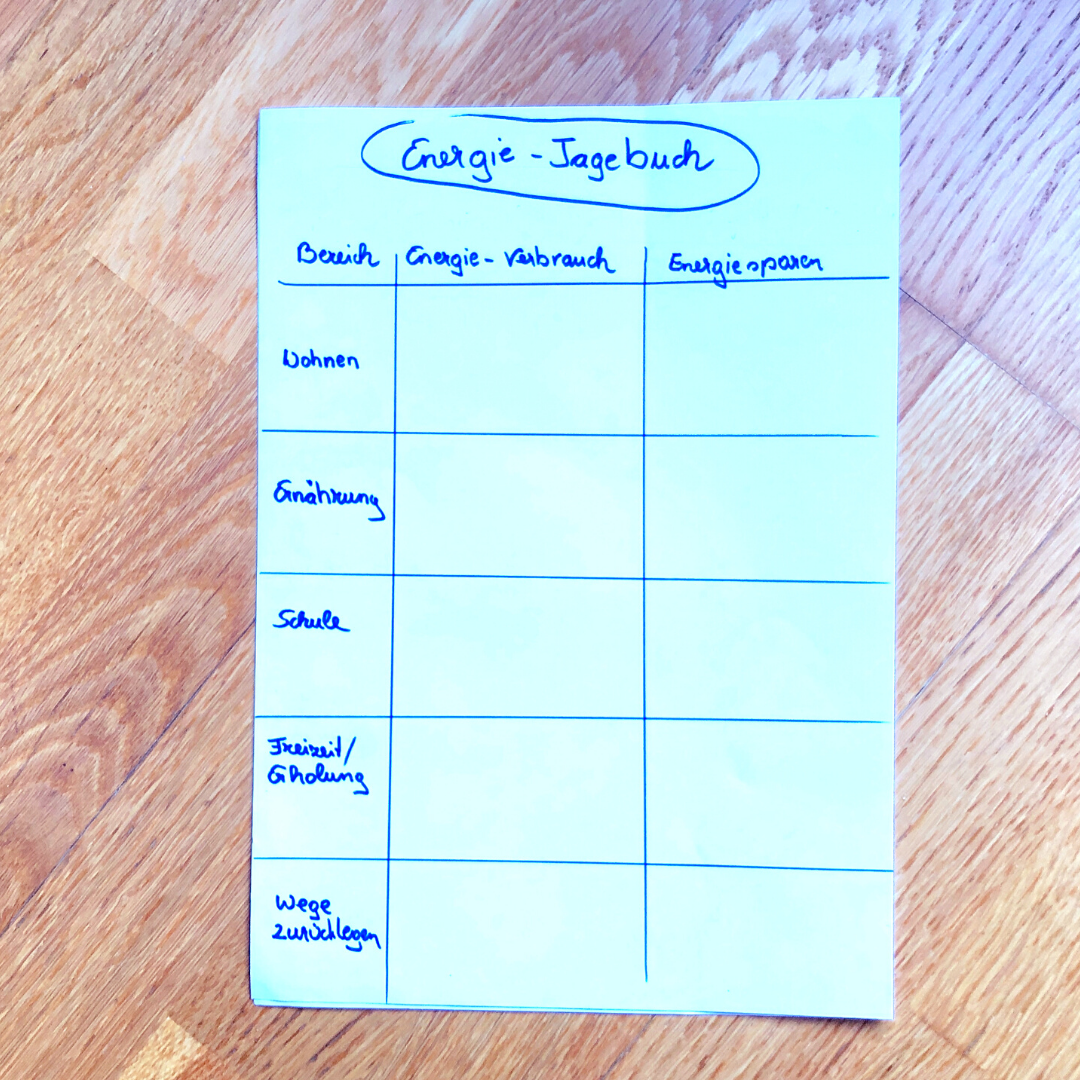 Energie - Tagebuch
Bereich Energie - Verbrauch Energiesparen
Wohnen
Ernährung
Schule
Freizeit/
Erholung
Wege
zurücklegen